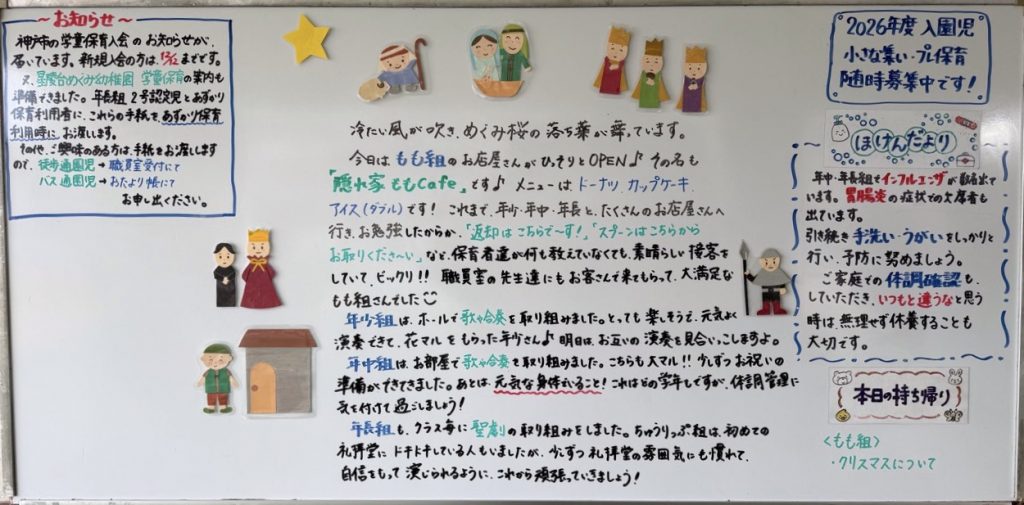 ～お知らせ～
神戸市の学童保育入会のお知らせが、
届いています。新規入会の方は、12/12までです。
又、星陵台めぐみ幼稚園 学童保育の案内も
準備できました。年長組 2号認定児とあずかり
保育利用者に、これらの手紙を、あずかり保育
利用時に、お渡しします。
その他、ご興味のある方は、手紙をお渡しします
ので、徒歩通園児→職員室受付にて
バス通園児→おたより帳にて
お申し出ください。
冷たい風が吹き、めぐみ桜の落ち葉が舞っています。
今日は もも組のお店屋さんがひっそりとOPEN♪ その名も
「隠れ家 ももCafe」です♪ メニューは ドーナツ、カップケーキ、
アイス(ダブル)です! これまで、年少・年中・年長と、たくさんのお店屋さんへ
行き、お勉強したからか、「返却はこちらで〜す!」「スプーンはこちらから
お取りくださ〜い」など、保育者達が何も教えていなくても、素晴らしい接客を
していて、ビックリ!! 職員室の先生達にもお客さんで来てもらって、大満足な
もも組さんでした
年少組は、ホールで歌や合奏を取り組みました。とっても楽しそうで、元気よく
演奏できて、花マルをもらった年少さん♪ 明日は、お互いの演奏を見合いっこしますよ。
年中組は、お部屋で歌や合奏を取り組みました。こちらも大マル!! 少しずつお祝いの
準備ができてきました。あとは、元気な身体でいること! これはどの学年もですが、体調管理に
気を付けて過ごしましょう!
年長組も、クラス毎に聖劇の取り組みをしました。ちゅうりっぷ組は、初めての
礼拝堂にドキドキしている人もいましたが、少しずつ礼拝堂の雰囲気にも慣れて、
自信をもって演じられるように、これから頑張っていきましょう!
2026年度 入園児
小さな集い・プレ保育
随時募集中です!
ほけんだより
年中・年長組でインフルエンザが数名出て
います。胃腸炎の症状での欠席者も
出ています。
引き続き手洗い・うがいをしっかりと
行い、予防に努めましょう。
ご家庭での体調確認も、
していただき、いつもと違うなと思う
時は、無理せず休養することも
大切です。
本日の持ち帰り
<もも組>
・クリスマスについて